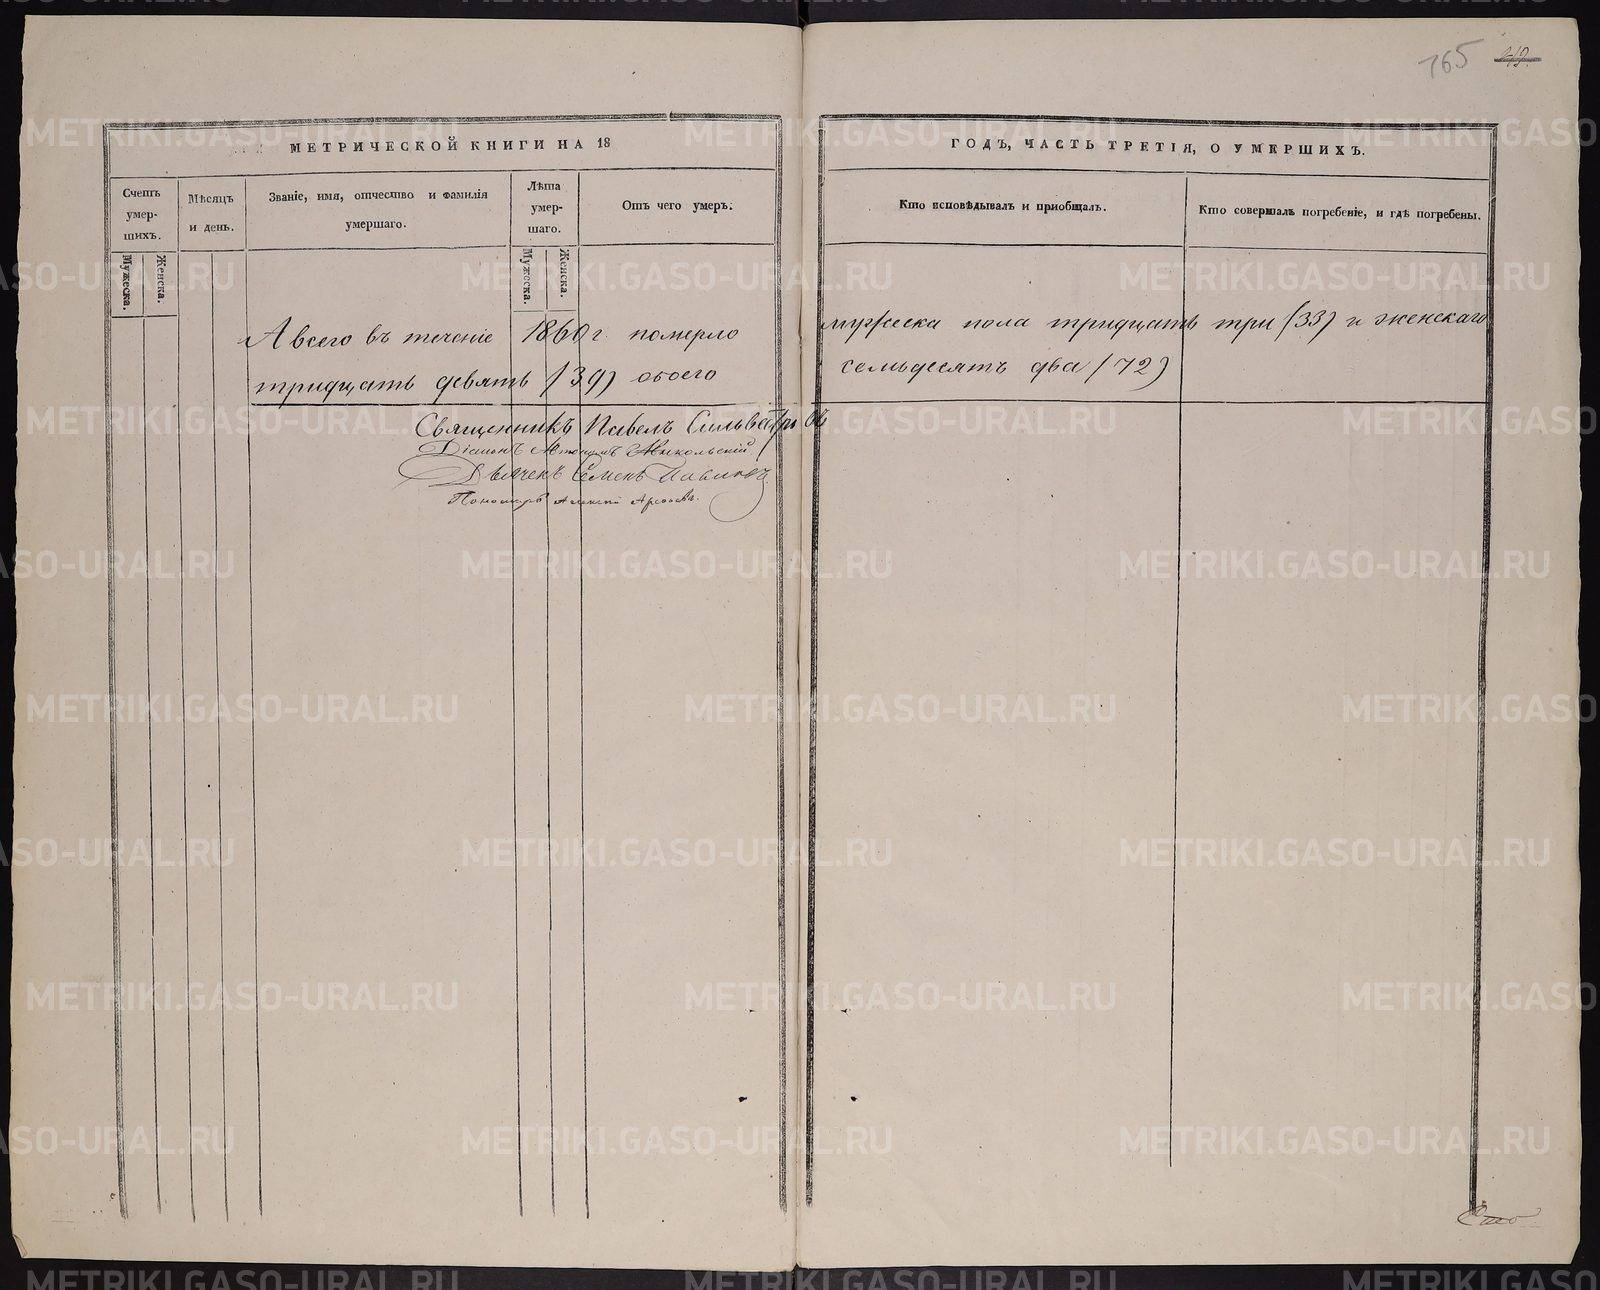 165
МЕТРИЧЕСКОЙ КНИГИ НА 18
ГОДЪ, ЧАСТЬ ТРЕТІЯ, О УМЕРШИХЪ.
Счетъ умер-шихъ.
Мужеска.
Женска.
Мѣсяцъ и день.
Званіе, имя, отчество и фамилія умершаго.
Лѣта умер-шаго.
Мужеска.
Женска.
Отъ чего умеръ.
Кто исповѣдывалъ и пріобщалъ.
Кто совершалъ погребеніе, и гдѣ погребены.
А всего въ теченіе 1860 г. померло мужеска пола тридцать три (33) и женскаго
тридцать девять (39) обоего семьдесятъ два (72)
Священникъ Павелъ Сильвестровъ
Діаконъ Никольскій
Дьячекъ Семенъ Павловъ
Пономарь Алексій
METRIKI.GASO-URAL.RU